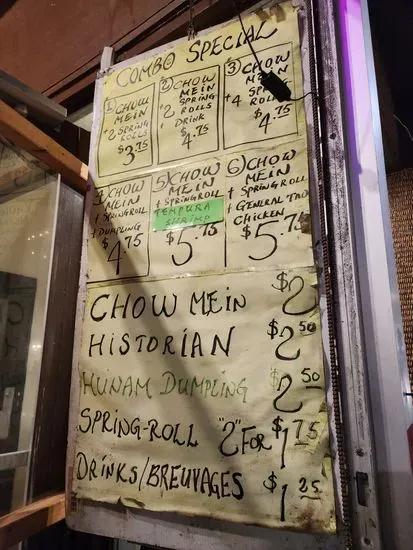 COMBO SPECIAL
1 CHOW
MEIN
+ 2 SPRING
ROLLS
$3.75
2 CHOW
MEIN
+ 2 SPRING
ROLLS
+ DRINK
$4.75
3 CHOW
MEIN
+ 4 SPRING
ROLLS
$4.75
4 CHOW
MEIN
+ SPRINGROLL
+ DUMPLING
$4.75
5 CHOW
MEIN
+ SPRINGROLL
TEMPURA
SHRIMP
$5.75
6 CHOW
MEIN
+ SPRINGROLL
+ GENERAL TAO
CHICKEN
$5.75
CHOW MEIN $2
HISTORIAN $2 50
HUNAM DUMPLING $2 50
SPRING-ROLL "2" FOR $1 75
DRINKS/BREUVAGES $1 25